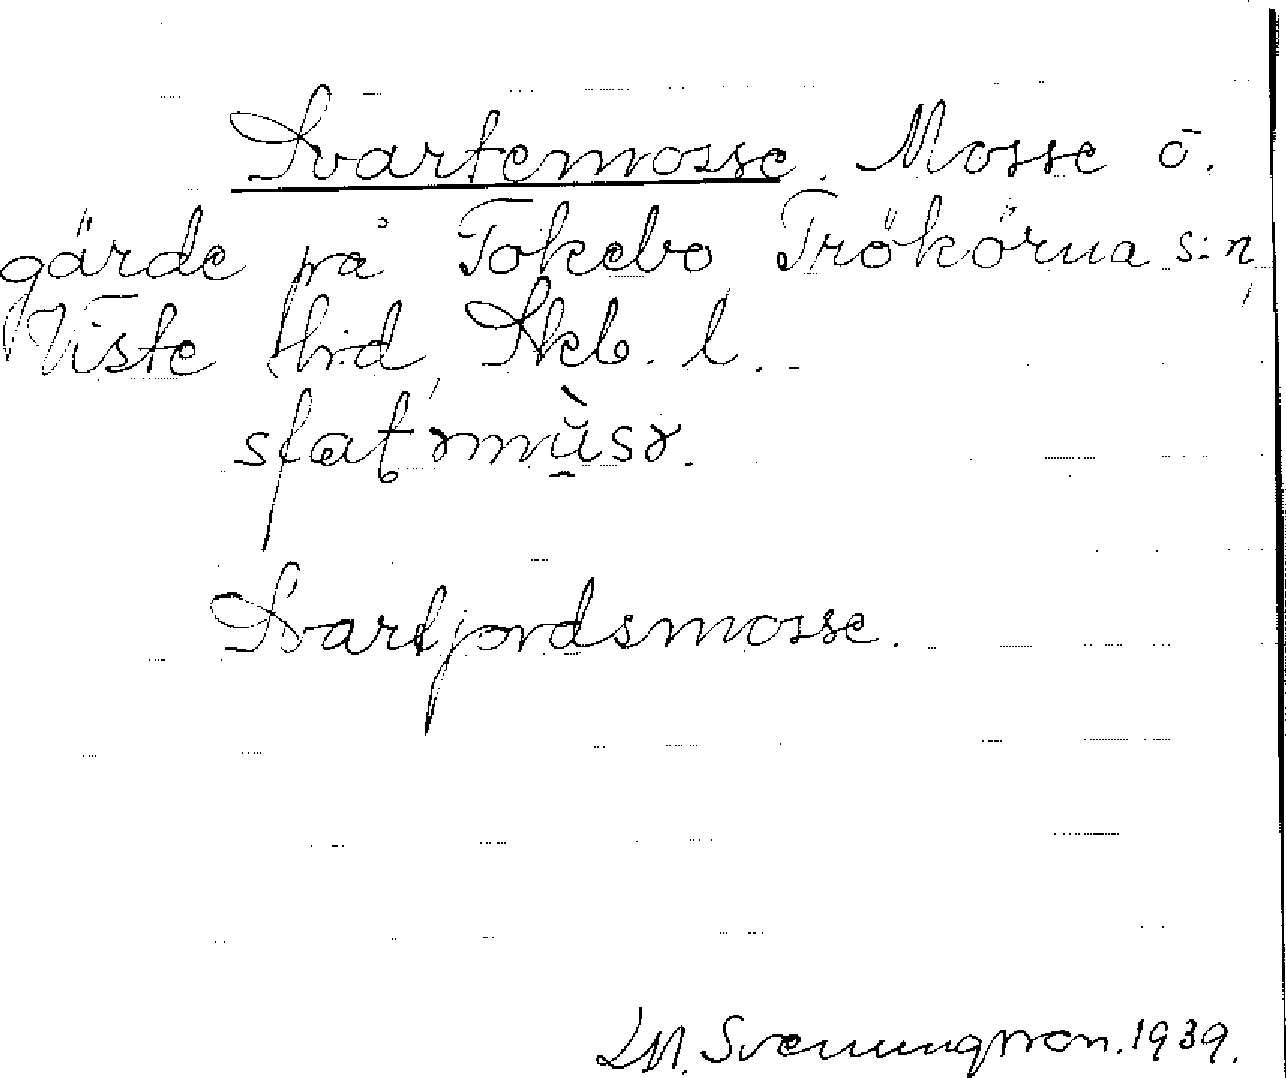 Svartemosse. Mosse ö.
gärde på Tokebo Trökörna s:n,
Viste hd, Skb. l.
Svartjordsmosse.
Svenungsson. 1939.